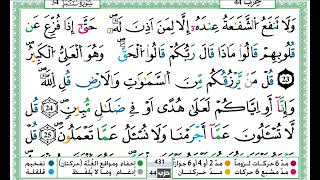 34 سُورَةُ سَبَإ حزب 44
وَلَا تَنفَعُ ٱلشَّفَٰعَةُ عِندَهُۥٓ إِلَّا لِمَنْ أَذِنَ لَهُۥ ۚ حَتَّىٰٓ إِذَا فُزِّعَ عَن
قُلُوبِهِمْ قَالُوا۟ مَاذَا قَالَ رَبُّكُمْ ۖ قَالُوا۟ ٱلْحَقَّ ۖ وَهُوَ ٱلْعَلِىُّ ٱلْكَبِيرُ
23 قُلْ مَن يَرْزُقُكُم مِّنَ ٱلسَّمَٰوَٰتِ وَٱلْأَرْضِ ۖ قُلِ ٱللَّهُ
وَإِنَّآ أَوْ إِيَّاكُمْ لَعَلَىٰ هُدًى أَوْ فِى ضَلَٰلٍ مُّبِينٍ 24 قُل
لَّا تُسْـَٔلُونَ عَمَّآ أَجْرَمْنَا وَلَا نُسْـَٔلُ عَمَّا تَعْمَلُونَ 25 قُلْ
مدّ 6 حركات لزوماً مدّ 2 أو 4 أو 6 جوازاً 431 إخفاء ومواقع الغُنَّة (حركتان) تفخيم
مدّ مشبع 6 حركات مدّ حركتان حزب 44 إدغام، وما لا يُلفَظ قلقلة